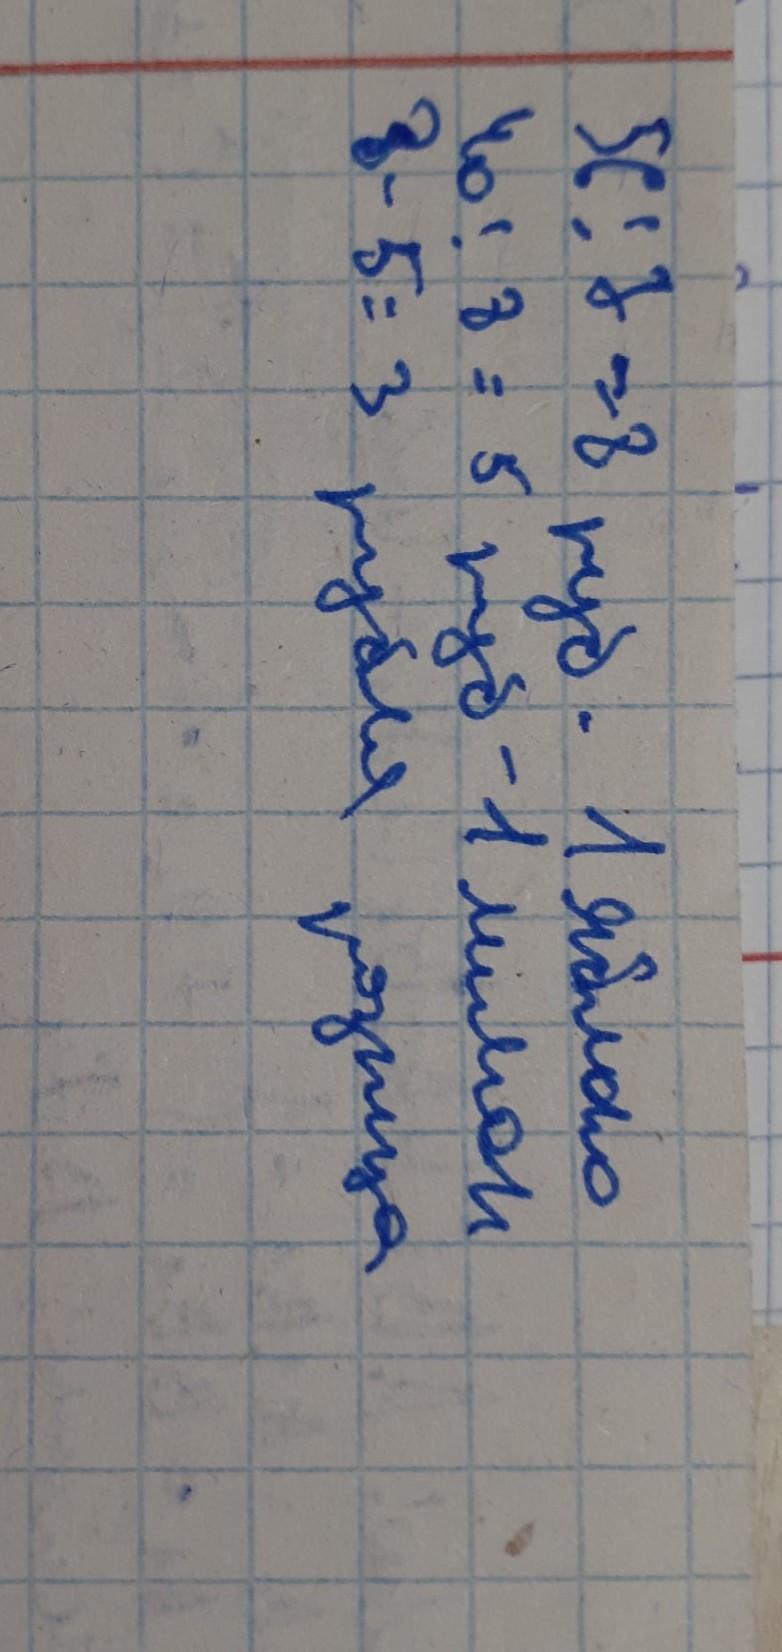 56 : 7 = 8 руб. 1 яблоко
40 : 8 = 5 руб - 1 лимон
8 - 5 = 3 рубля разница